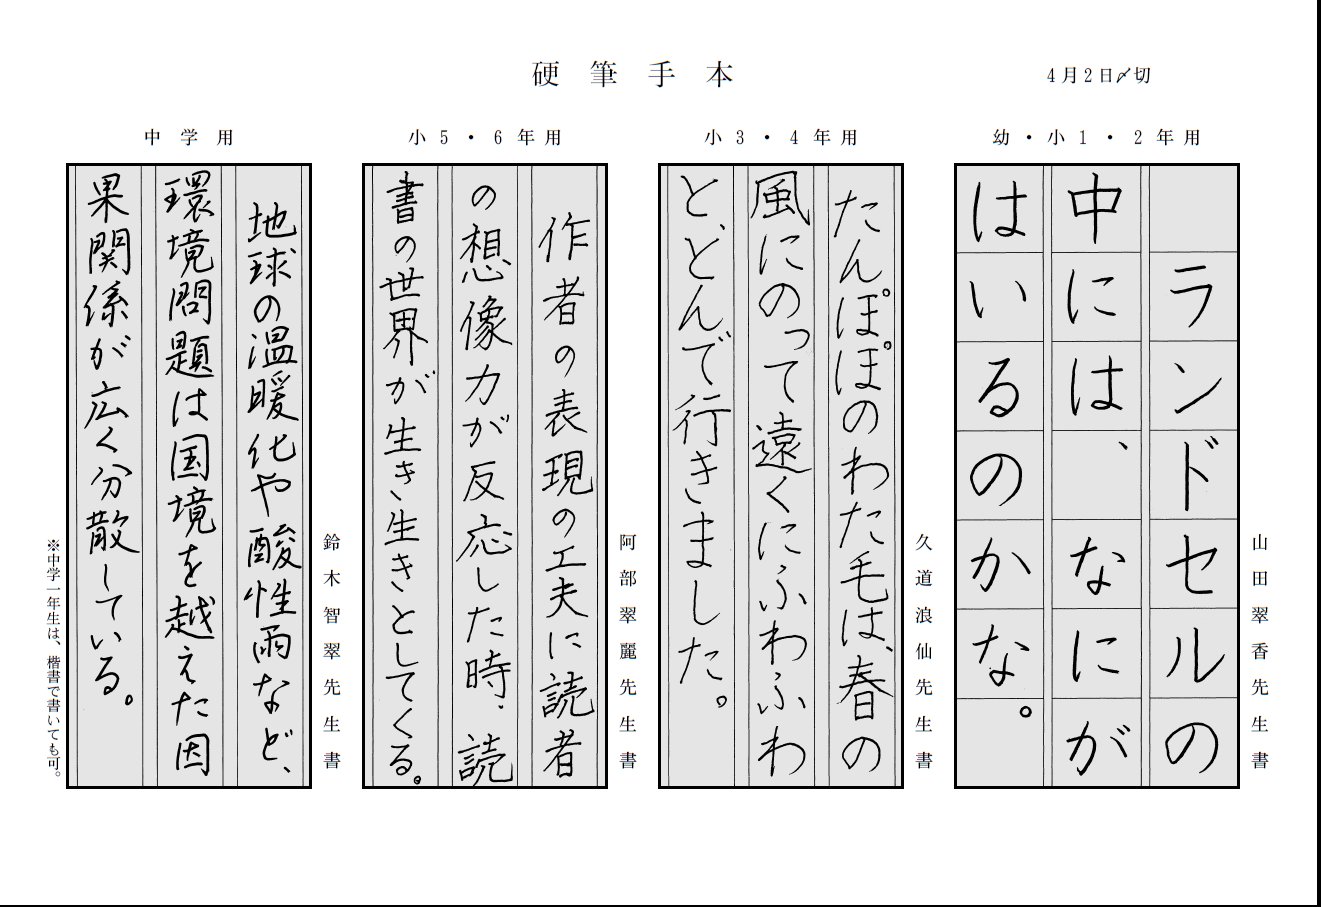 硬筆手本
4月2日〆切
幼・小1・2年用
ランドセルの
中には、なにが
はいるのかな。
山田翠香先生書
小3・4年用
たんぽぽのわた毛は、春の
風にのって遠くにふわふわ
と、とんで行きました。
久道浪仙先生書
小5・6年用
作者の表現の工夫に読者
の想像力が反応した時、読
書の世界が生き生きとしてくる。
阿部翠麗先生書
中学用
地球の温暖化や酸性雨など、
環境問題は国境を越えた因
果関係が広く分散している。
鈴木智翠先生書
※中学一年生は、楷書で書いても可。